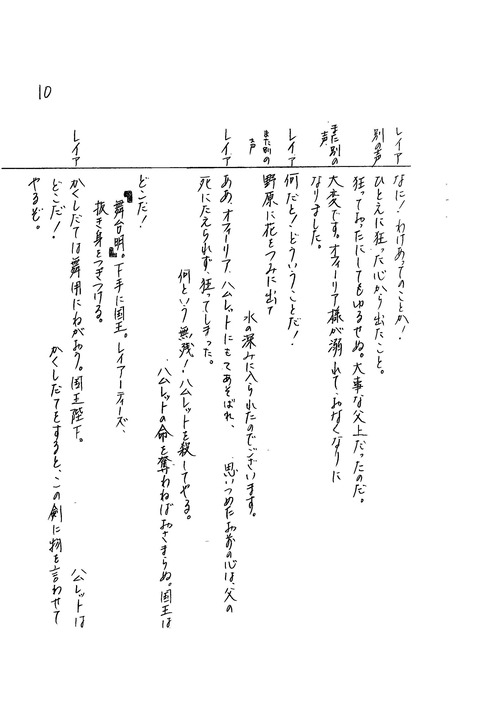 10
レイア なに！わけあってのことか！
別の声 ひとえに狂った心から出たこと。
狂っておったにしてもゆるせぬ。大事な父上だったのだ。
また別の声 大変です。オフィーリア様が溺れて、おなくなりに
なりました。
レイア 何だと！どういうことだ！
また別の声 野原に花をつみに出て
水の深みに入られたのでございます。
レイア ああ、オフィーリア、ハムレットにもてあそばれ、 思いつめたお前の心は、父の
死にたえられず、狂ってしまった。
何という無残！ハムレットを殺してやる。
ハムレットの命を奪わねばおさまらぬ。国王は
どこだ！
舞台明。下手に国王。レイアーティーズ、
抜き身をつきつける。
レイア かくしだては無用にねがおう。国王陛下。 ハムレットは
どこだ！ かくしだてをすると、この剣に物を言わせて
やるぞ。